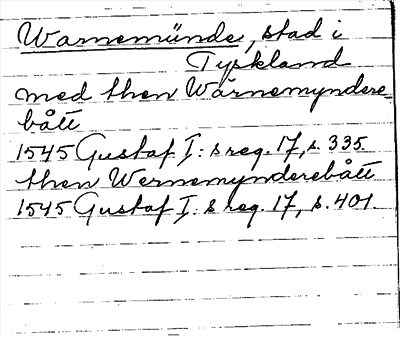 Warnemünde, stad i
Tyskland
med then Wärnemyndere
bått
1545 Gustaf I:s reg. 17, s. 335
then Wernemynderebått
1545 Gustaf I:s reg. 17, s. 401